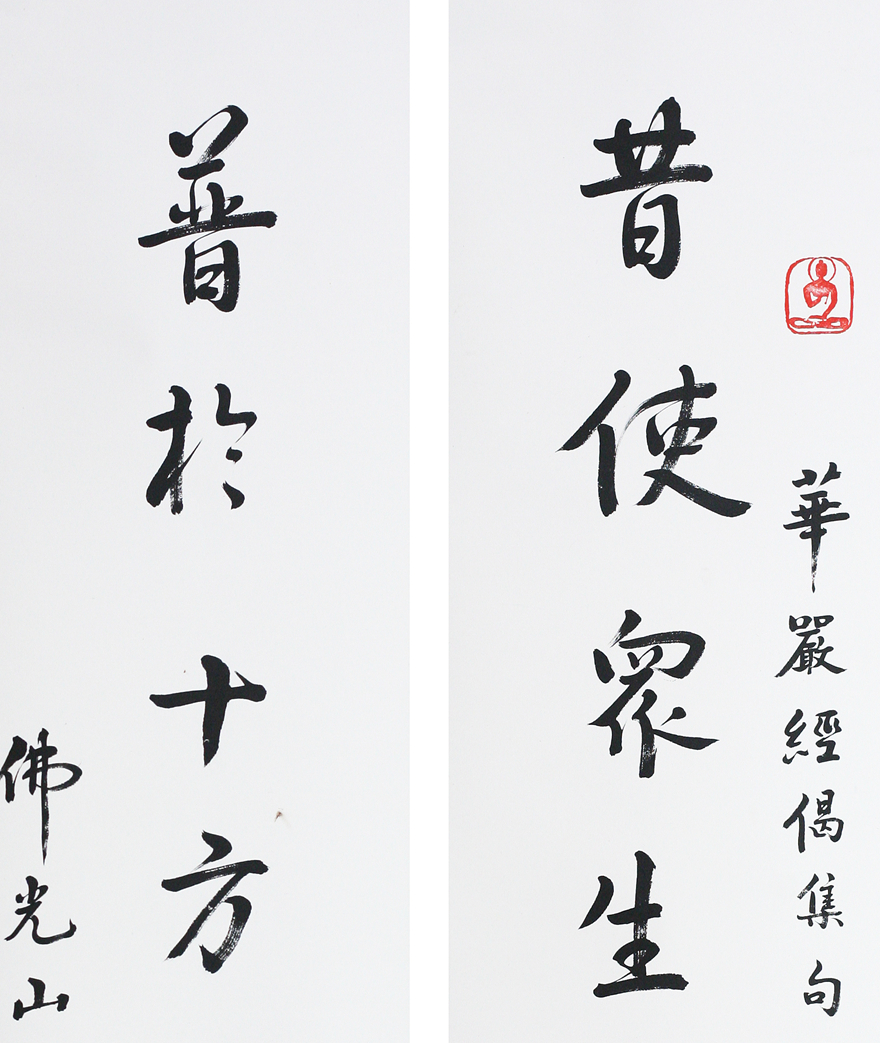 華嚴經偈集句
昔使眾生
普於十方
佛光山